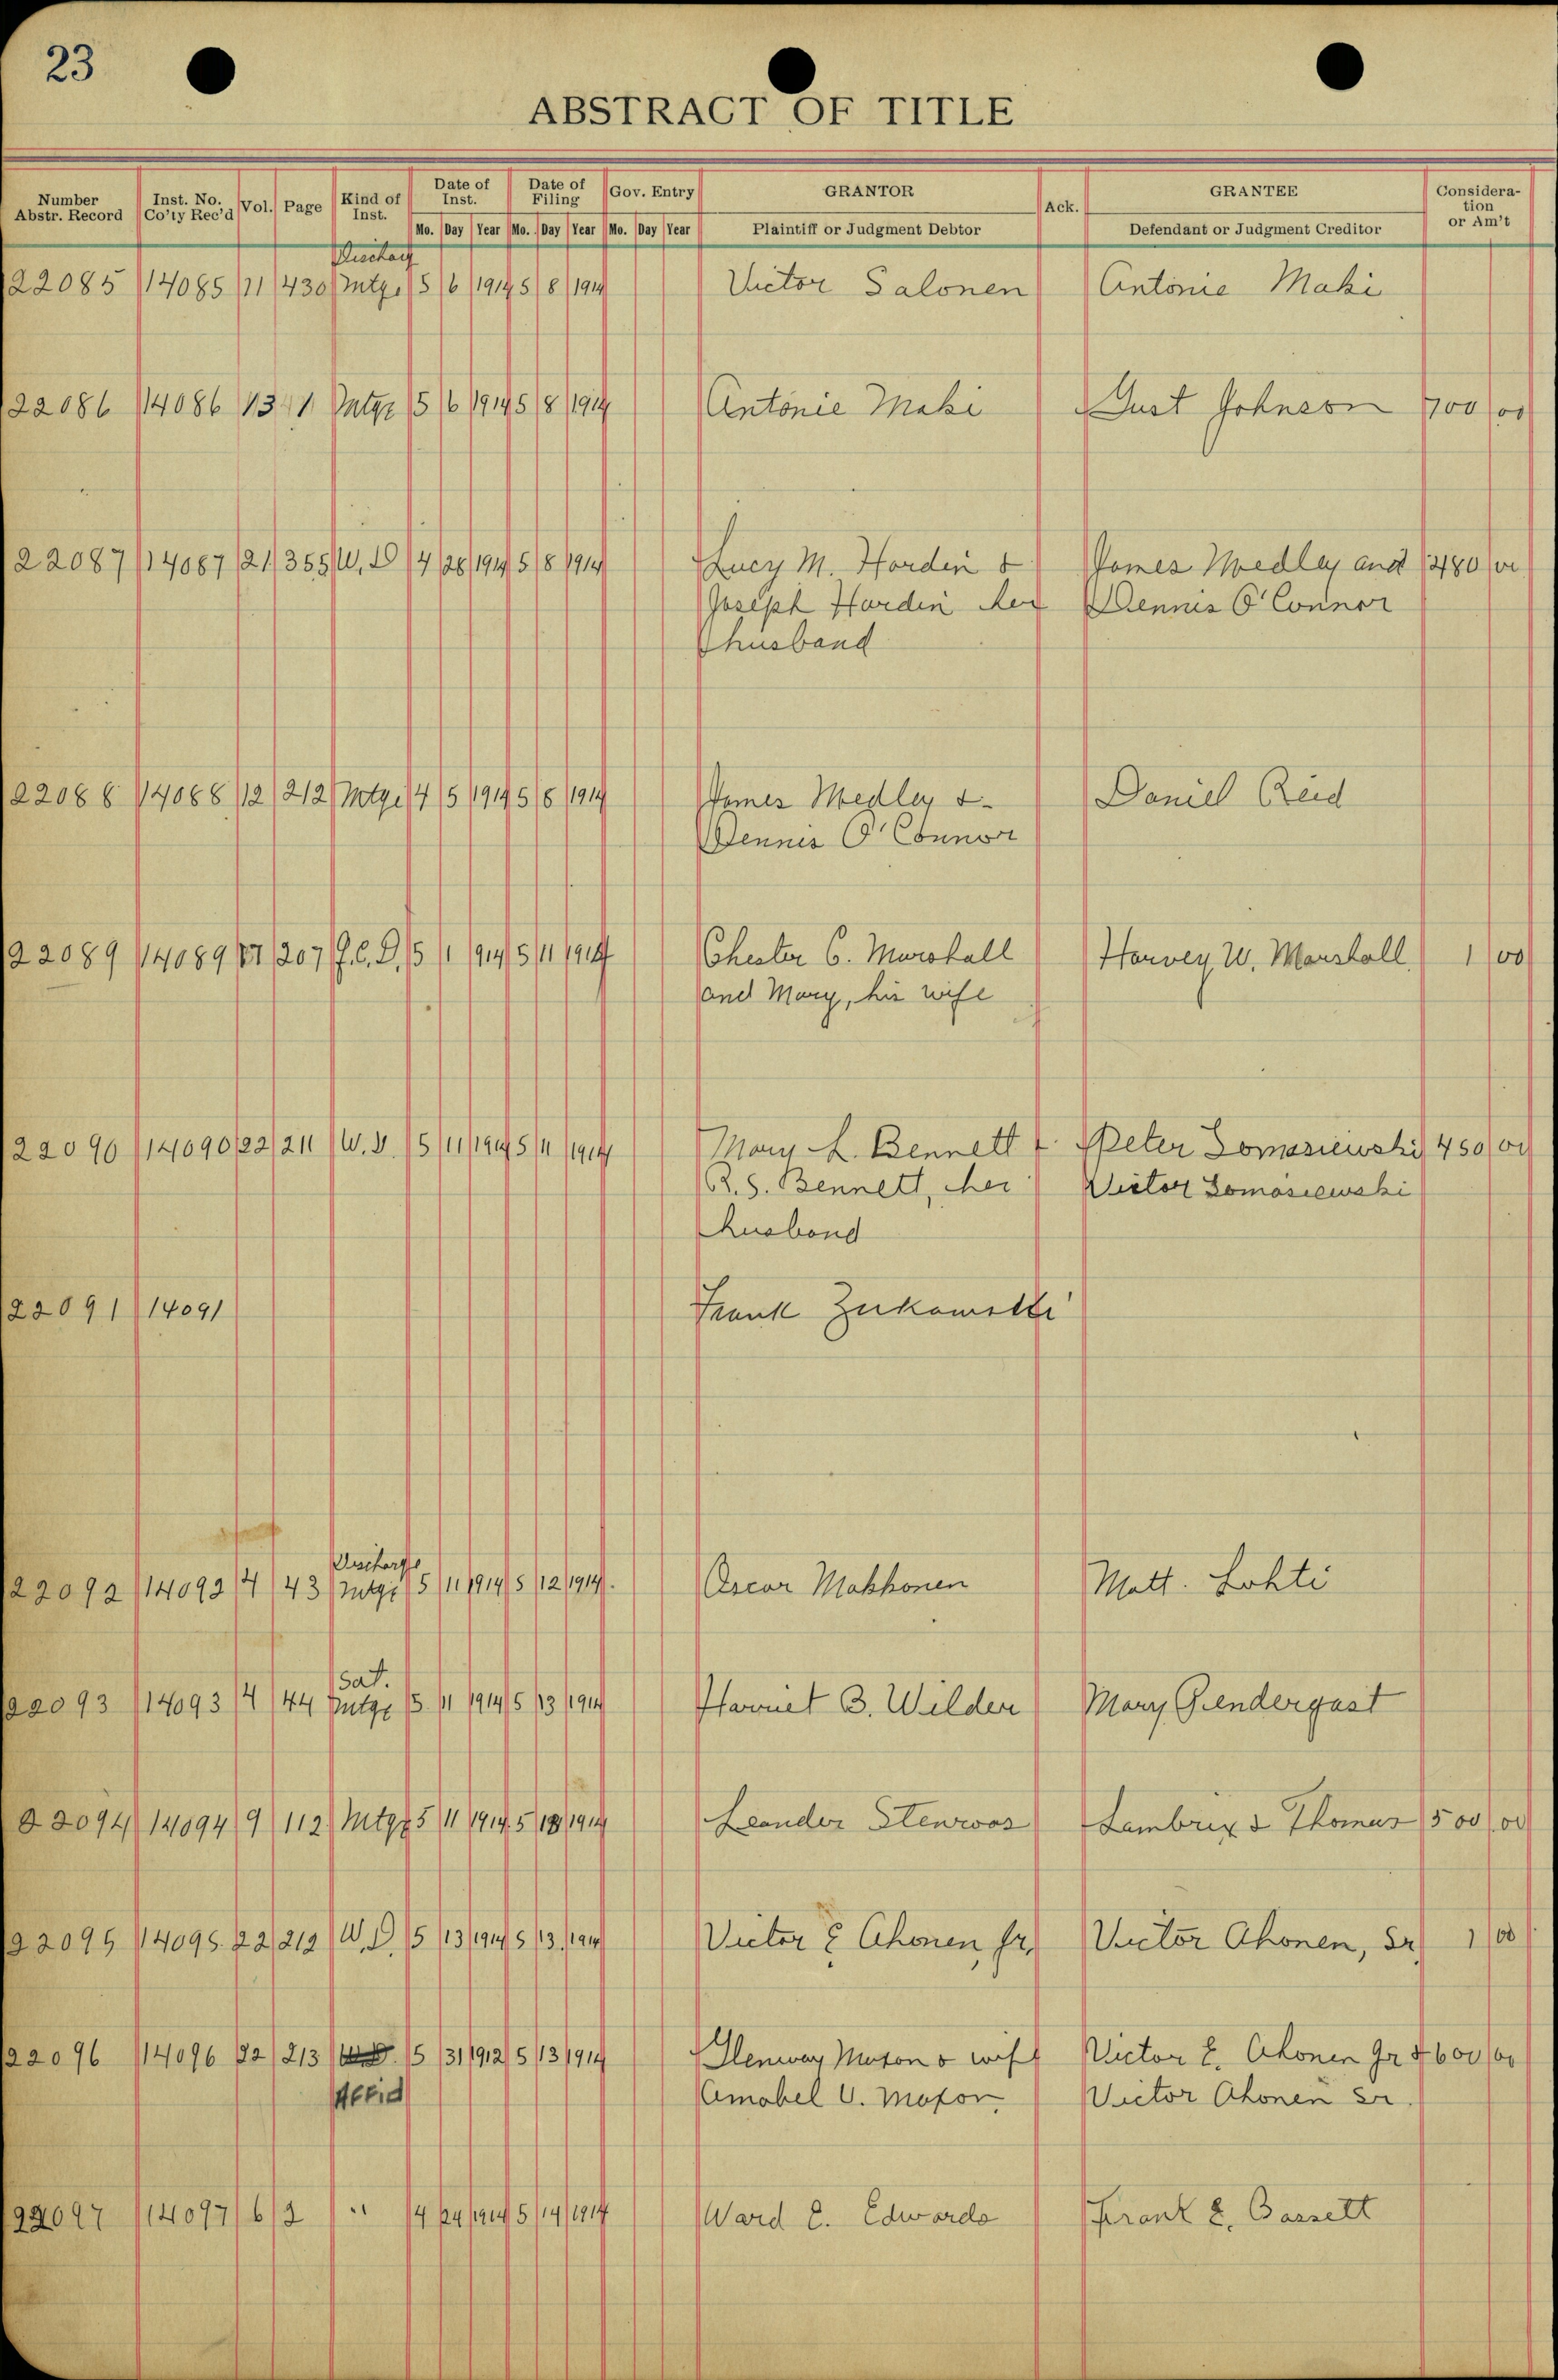 23
ABSTRACT OF TITLE
Number Abstr. Record Inst. No. Co'ty Rec'd Vol. Page Kind of Inst. Date of Inst. Date of Filing Gov. Entry GRANTOR Ack. GRANTEE Considera-tion or Am't
Mo. Day Year Mo. Day Year Mo. Day Year Plaintiff or Judgment Debtor Defendant or Judgment Creditor
22085 14085 11 430 Mtge 5 6 1914 5 8 1914 Victor Salonen Antonie Maki
22086 14086 13 1 Mtge 5 6 1914 5 8 1914 Antonie Maki Gust Johnson 700 00
22087 14087 21 355 W. D 4 28 1914 5 8 1914 Lucy M. Hardin & James Medley and 480 00
Joseph Hardin her Dennis O'Connor
husband
22088 14088 12 212 Mtge 4 5 1914 5 8 1914 James Medley & Daniel Reid
Dennis O'Connor
22089 14089 207 Q.C.D. 5 1 1914 5 11 1914 Chester C. Marshall Harvey W. Marshall 1 00
and Mary, his wife
22090 14090 22 211 W. D. 5 11 1914 5 11 1914 Mary L. Bennett & Peter Domasiewski 450 00
R. S. Bennett, her Victor Domasiewski
husband
22091 14091 Frank Zukowski
Discharge
22092 14092 4 43 Mtge 5 11 1914 5 12 1914. Oscar Makkonen Matt. Lohti
Sat.
22093 14093 4 44 Mtge 5 11 1914 5 13 1914 Harriet B. Wilder Mary Pendergast
22094 14094 9 112 Mtge 5 11 1914 5 13 1914 Leander Stenroos Lambrix & Thomas 500 00
22095 14095 22 212 W. D. 5 13 1914 5 13 1914 Victor E Ahonen, Jr, Victor Ahonen, Sr 1 00
22096 14096 22 213 W.D. 5 31 1912 5 13 1914 Glenway Maxon & wife Victor E. Ahonen Jr & 600 00
Affid Amabel V. Maxon Victor Ahonen Sr.
22097 14097 6 2 " 4 24 1914 5 14 1914 Ward E. Edwards Frank E. Bassett